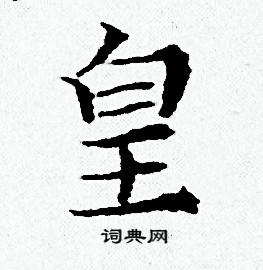 皇
词典网